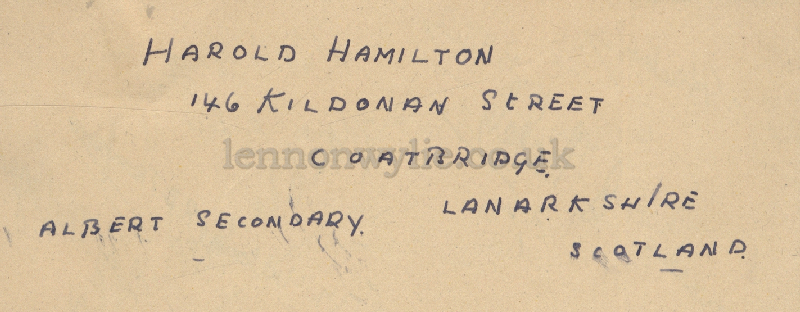 HAROLD HAMILTON
146 KILDONAN STREET
lennonwylie.co.uk
COATBRIDGE.
LANARKSHIRE
ALBERT SECONDARY.
SCOTLAND.